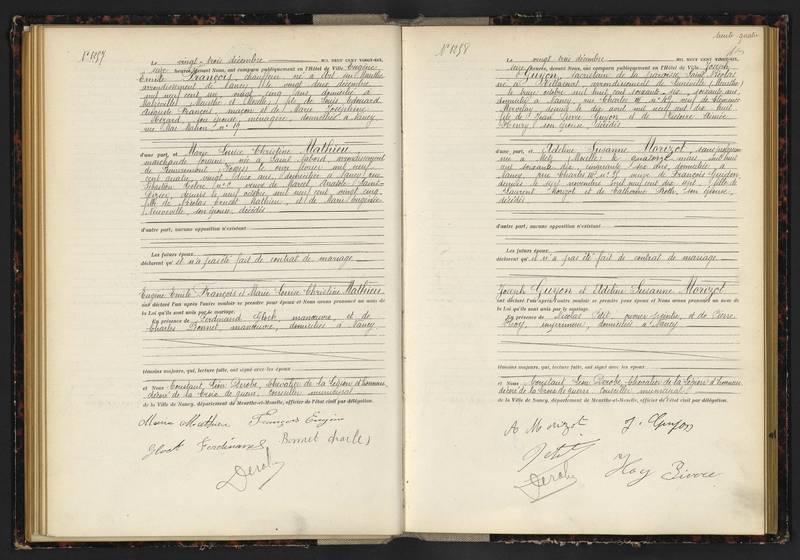 N° 1057
Le vingt trois décembre MIL NEUF CENT VINGT-SIX,
heures, devant Nous, ont comparu publiquement en l'Hôtel de Ville Eugène
Emile François, chauffeur né à
arrondissement de Nancy, le vingt deux décembre
mil neuf cent un, vingt cinq ans, domicilié à
Malzéville, Meurthe et Moselle, fils de Louis Edouard
Auguste François, maçon et de Marie Joséphine
son épouse, ménagère, domiciliés à Nancy,
rue Mac Mahon n° 19
d'une part, et Marie Louise Christine Mathieu,
marchande foraine, née à Saint Nabord, arrondissement
de Remiremont, Vosges le onze février mil neuf
cent quatre, vingt deux ans, domiciliée à Nancy, rue
Sébastien n° veuve de Marcel Anatole Saint-
depuis le octobre mil neuf cent vingt cinq,
fille de Nicolas Ernest Mathieu, et de Marie Eugénie
son épouse, décédés
d'autre part; aucune opposition n'existant
Les futurs époux
déclarent qu'il n'a pas été fait de contrat de mariage
Eugène Emile François et Marie Louise Christine Mathieu,
ont déclaré l'un après l'autre vouloir se prendre pour époux et Nous avons prononcé au nom de
la Loi qu'ils sont unis par le mariage.
En présence de Ferdinand Block, manœuvre, et de
Charles Bonnet, manœuvre, domiciliés à Nancy
témoins majeurs, qui, lecture faite, ont signé avec les époux
et Nous Constant, Léon Derobe, chevalier de la Légion d'honneur
décoré de la Croix de guerre, conseiller municipal
de la Ville de Nancy, département de Meurthe-et-Moselle, officier de l'état civil par délégation.
Marie Mathieu François Eugène
Ferdinand Bonnet Charles
Derobe
N° 1058
Le vingt trois décembre MIL NEUF CENT VINGT-SIX,
heures, devant Nous, ont comparu publiquement en l'Hôtel de Ville Joseph
Guyon, sacristain de la paroisse Saint Nicolas
né à arrondissement de Lunéville (Meurthe)
le treize octobre mil huit cent soixante six, soixante ans,
domicilié à Nancy, rue Charles III n° veuf de
depuis le dix août mil neuf cent dix huit,
fils de Jean Pierre Guyon et de Victoire Aimée
Henry, son épouse, décédés
d'une part, et Adeline Suzanne Morizot, sans profession
née à Metz (Moselle) le quatorze mars mil huit
cent soixante six, domiciliée à
Nancy, rue Charles III n° veuve de François Guidon
depuis le sept novembre mil neuf cent dix sept, fille de
Laurent Morizot et de Catherine Roth, son épouse,
décédés
d'autre part; aucune opposition n'existant
Les futurs époux
déclarent qu'il n'a pas été fait de contrat de mariage
Joseph Guyon et Adeline Suzanne Morizot
ont déclaré l'un après l'autre vouloir se prendre pour époux et Nous avons prononcé au nom de
la Loi qu'ils sont unis par le mariage.
En présence de Nicolas Petit, ouvrier peintre, et de Pierre
Hoy, infirmier, domiciliés à Nancy
témoins majeurs, qui, lecture faite, ont signé avec les époux
et Nous Constant, Léon Derobe, chevalier de la Légion d'honneur
décoré de la Croix de guerre, conseiller municipal
de la Ville de Nancy, département de Meurthe-et-Moselle, officier de l'état civil par délégation.
A Morizot J. Guyon
Petit
Derobe Hoy Pierre